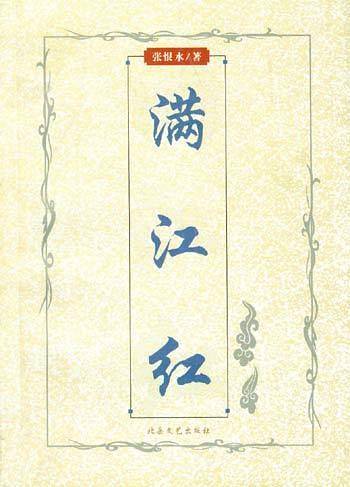 张恨水/著
满江红
北岳文艺出版社